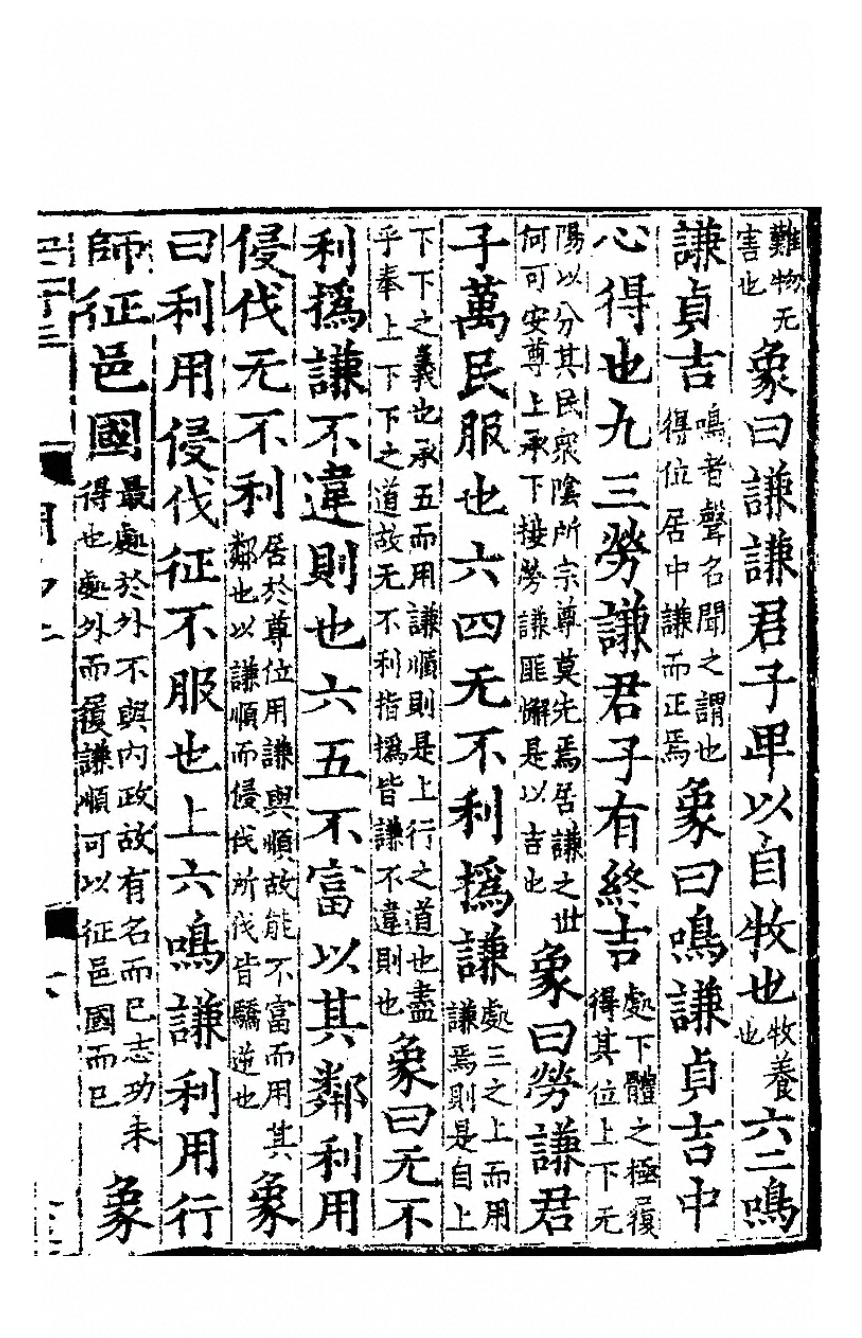 難物无害也象曰謙謙君子卑以自牧也牧養也六二鳴
謙貞吉鳴者聲名聞之謂也得位居中謙而正焉象曰鳴謙貞吉中
心得也九三勞謙君子有終吉處下體之極履得其位上下无
陽以分其民衆陰所宗尊莫先焉居謙之世何可安尊上承下接勞謙匪懈是以吉也象曰勞謙君
子萬民服也六四无不利撝謙處三之上而用謙焉則是自上
下下之義也承五而用謙順則是上行之道也盡乎奉上下下之道故无不利指撝皆謙不違則也象曰无不
利撝謙不違則也六五不富以其鄰利用
侵伐无不利居於尊位用謙與順故能不富而用其鄰也以謙順而侵伐所伐皆驕逆也象
曰利用侵伐征不服也上六鳴謙利用行
師征邑國最處於外不與內政故有名而已志功未得也處外而履謙順可以征邑國而已象